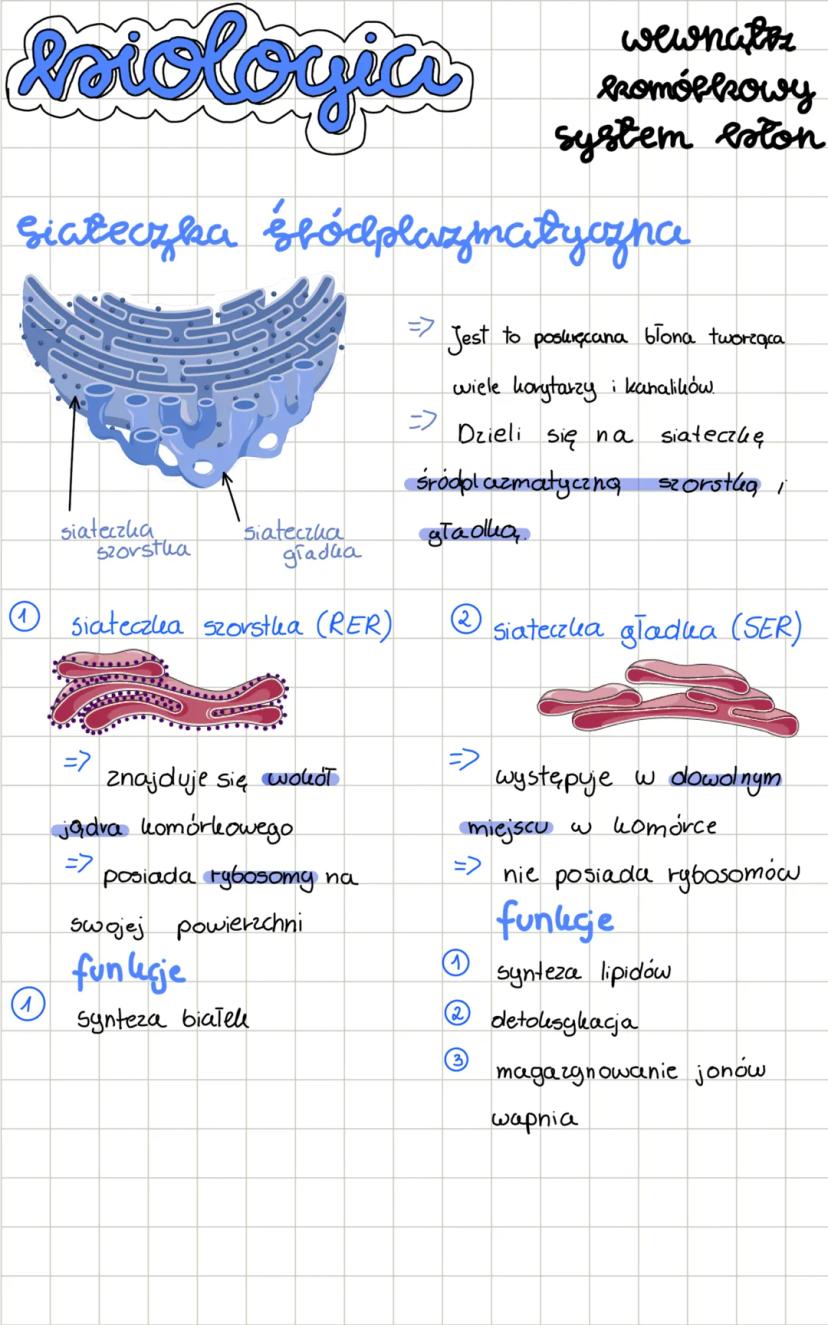 biologia
wewnątrz
komórkowy
system błon
siateczka śródplazmatyczna
=> Jest to poskręcana błona tworząca
wiele korytarzy i kanalików.
=> Dzieli się na siateczkę
śródplazmatyczną szorstką i
gładką.
siateczka
szorstka
siateczka
gładka
1 siateczka szorstka (RER)
=> znajduje się wokół
jądra komórkowego
=> posiada rybosomy na
swojej powierzchni
funkcje
1 synteza białek
2 siateczka gładka (SER)
=> występuje w dowolnym
miejscu w komórce
=> nie posiada rybosomów
funkcje
1 synteza lipidów
2 detoksykacja
3 magazynowanie jonów
wapnia